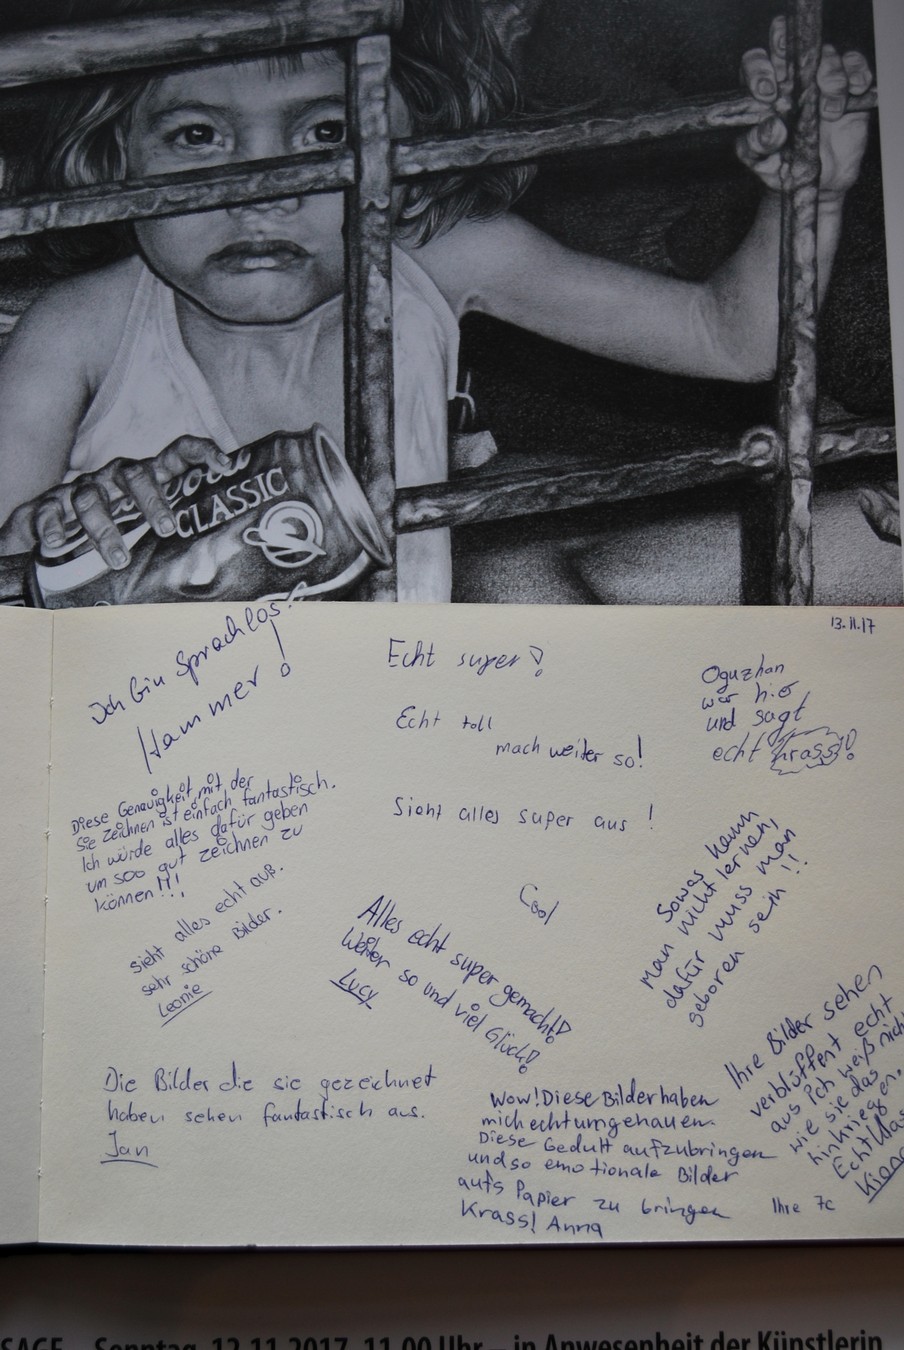 Cola
CLASSIC
13.11.17
Ich bin Sprachlos!
Hammer!
Diese Genauigkeit mit der
Sie zeichnen ist einfach fantastisch.
Ich würde alles dafür geben
um soo gut zeichnen zu
können!!!
Sieht alles echt auß.
sehr schöne Bilder.
Leonie
Die Bilder die sie gezeichnet
haben sehen fantastisch aus.
Jan
Echt super!
Echt toll
mach weiter so!
Sieht alles super aus!
Cool
Alles echt super gemacht!
Weiter so und viel Glück!
Lucy
Wow! Diese Bilder haben
mich echt umgehauen.
Diese Gedult aufzubringen
und so emotionale Bilder
aufs Papier zu bringen
Krass! Anna
Oguzhan
war hier
und sagt
echt krass!
Sowas kann
man nicht lernen,
dafür muss man
geboren sein!!
Ihre Bilder sehen
verblüffent echt
aus Ich weiß nicht
wie sie das
hinkriegen.
Echt
Ihre 7c
SAGE – Sonntag, 12.11.2017, 11.00 Uhr – in Anwesenheit der Künstlerin